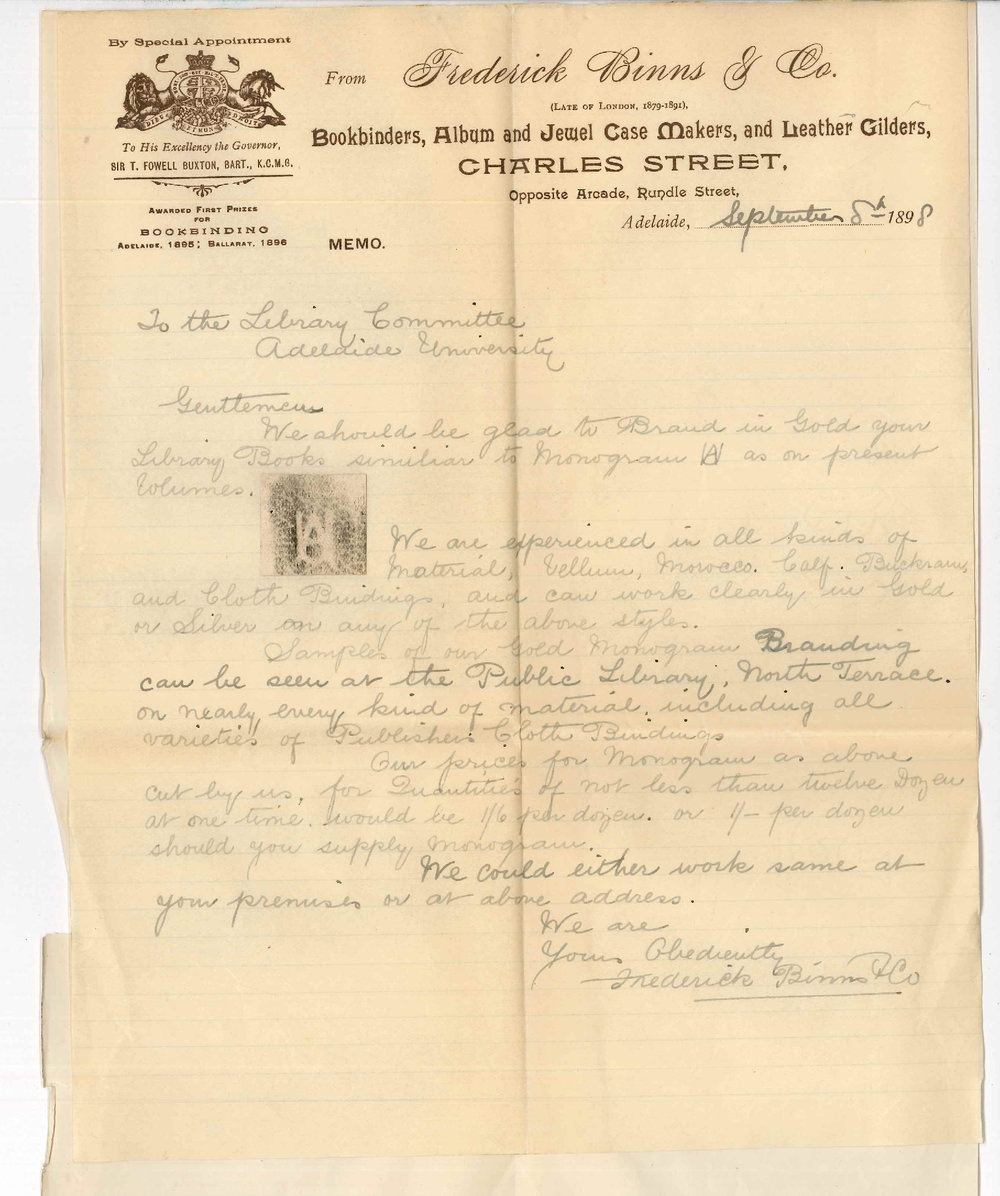 By Special Appointment
DIEU ET MON DROIT
To His Excellency the Governor,
SIR T. FOWELL BUXTON, BART., K.C.M.G.
AWARDED FIRST PRIZES
FOR
BOOKBINDING
ADELAIDE, 1895; BALLARAT, 1896
From Frederick Binns & Co.
(LATE OF LONDON, 1879-1891),
Bookbinders, Album and Jewel Case Makers, and Leather Gilders,
CHARLES STREET,
Opposite Arcade, Rundle Street,
Adelaide, September 8th 1898
MEMO.
To the Library Committee
Adelaide University
Gentlemen
We should be glad to Brand in Gold your
Library Books similiar to Monogram as on present
Volumes.
We are experienced in all kinds of
Material, Vellum, Morocco. Calf. Buckram,
and Cloth Bindings, and can work clearly in Gold
or Silver on any of the above styles.
Samples of our Gold Monogram Branding
can be seen at the Public Library, North Terrace.
on nearly every kind of material, including all
varieties of Publishers Cloth Bindings
Our prices for Monogram as above
cut by us, for Quantities of not less than twelve Dozen
at one time. would be 1/6 per dozen. or 1/- per dozen
should you supply Monogram.
We could either work same at
your premises or at above address.
We are
Yours Obediently
Frederick Binns & Co